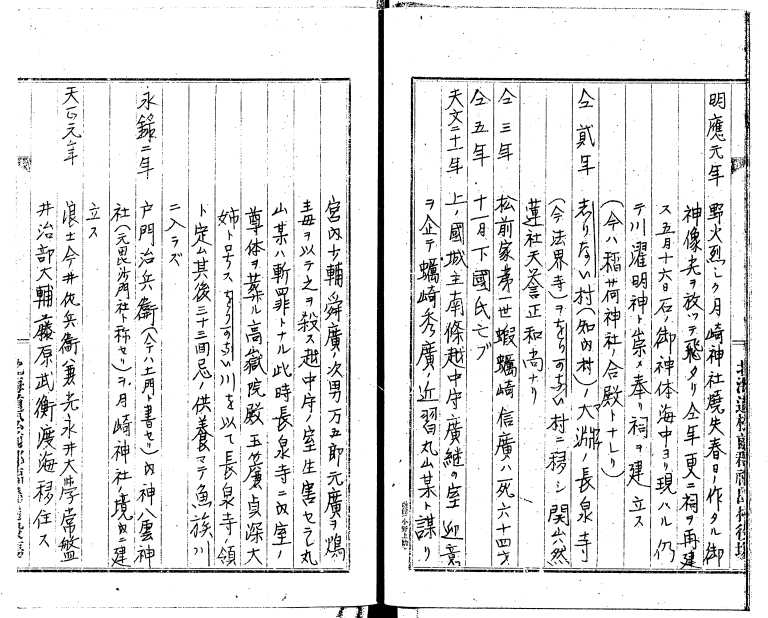 明應元年 野火烈シク月崎神社燒失春日ノ作タル御
神像光ヲ放ツテ飛タリ仝年更ニ祠ヲ再建
ス五月十六日石ノ御神体海中ヨリ現ハル仍
テ川濯明神ト崇メ奉リ祠ヲ建立ス
(今ハ稲荷神社ノ合殿トナレリ)
仝貮年 志りうち村(知内村)ノ大淵ノ長泉寺
(今法界寺)ヲ 村ニ移シ関山然
蓮社天誉正和尚ナリ
仝三年 松前家第一世蝦蠣崎信廣ハ死六十四才
仝五年 十一月下國氏亡ブ
天文二十一年 上ノ國城主南條越中守廣継の室 迎意
ヲ企テ蠣崎秀廣ノ近習丸山某ト謀リ
宮内少輔舜廣ノ次男万五郎元廣ヲ鴆
毒ヲ以テ之ヲ殺ス越中守ノ室生害セラレ丸
山某ハ斬罪トナル此時長泉寺ニ内室ノ
尊体ヲ葬ル高嶽院殿玉簾貞深大
姉ト号ス 川を以て長泉寺ノ領
ト定ム其後三十三回忌ノ供養マテ魚族川
ニ入ラズ
永録二年 戸門治兵衛(今ハ土門ト書セリ)内神八雲神
社(元毘沙門社ト称セリ)ヲ月崎神社ノ境内ニ建
立ス
天正元年 浪士今井佐兵衛兼光永井大学常盤
井治部大輔藤原武衡渡海移住ス